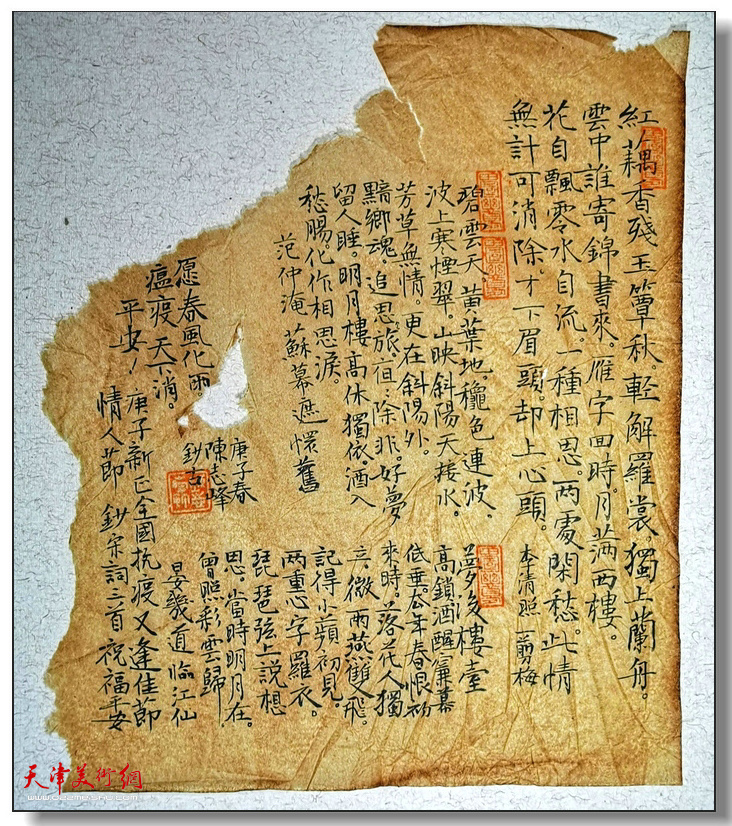 紅藕香殘玉簟秋。輕解羅裳。獨上蘭舟。
雲中誰寄錦書來。雁字回時。月满西樓。
花自飄零水自流。一種相思。两處閑愁。此情
無計可消除。才下眉頭。却上心頭。
李清照 一剪梅
碧雲天 黄葉地 穐色連波。
波上寒煙翠。山映斜陽天接水。
芳草無情。更在斜陽外。
黯鄉魂 追思旅宿 除非 好夢
留人睡。明月樓高休獨依。酒入
愁腸。化作相思淚。
范仲淹 蘇幕遮 懷舊
夢後樓臺
高鎖酒醒簾幕
低垂。去年春恨却
來時。落花人獨
立。微雨燕雙飛。
記得小蘋初見。
两重心字羅衣。
琵琶弦上説想
思。當時明月在。
曾照彩雲歸
晏幾道 臨江仙
庚子春
陳志峰
鈔古
愿春風化雨。
瘟疫 天下消。
平安！
庚子新正全國抗疫又逢佳節
情人節 鈔宋詞三首 祝福平安
天津美術網